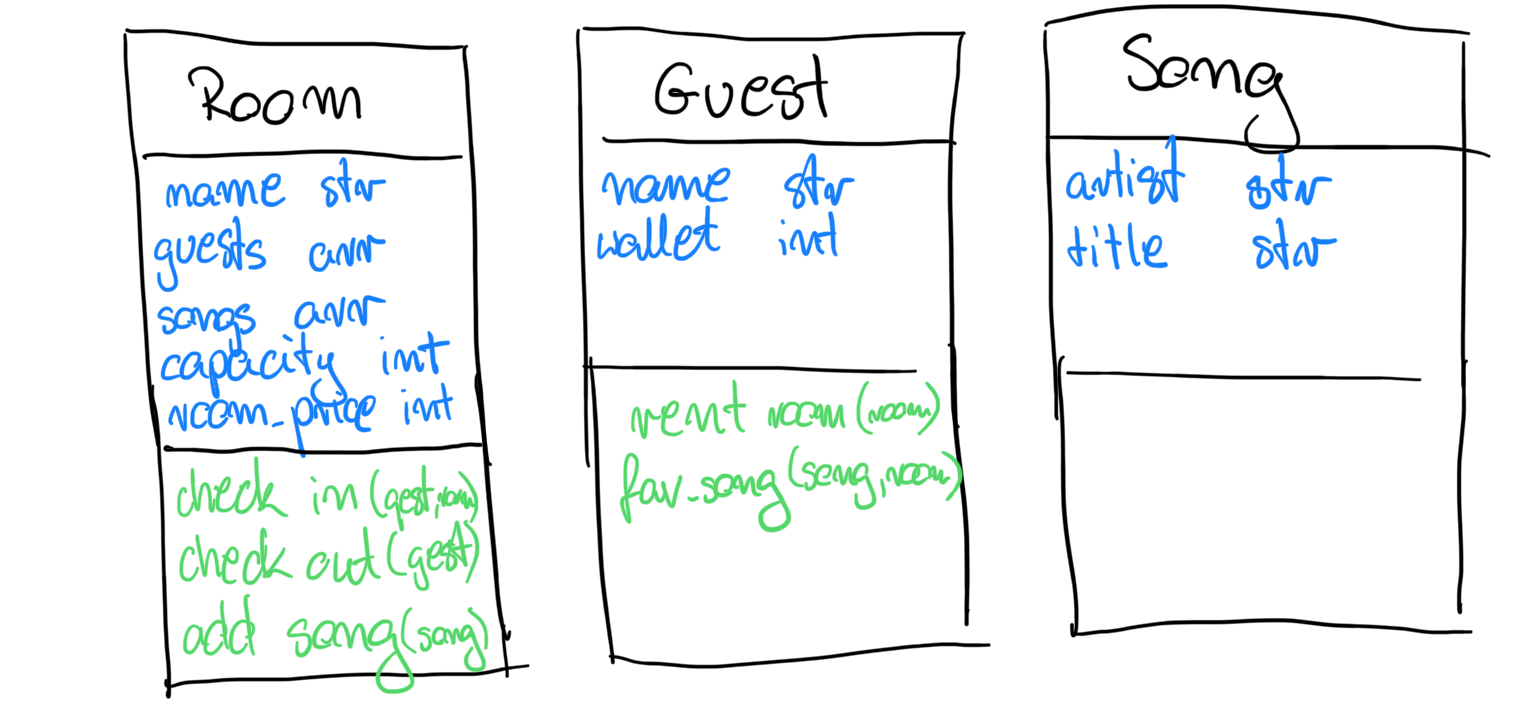 Room
name str
guests arr
songs arr
capacity int
room_price int
check in (gest, room)
check out (gest)
add song (song)
Guest
name str
wallet int
rent room (room)
fav_song (song, room)
Song
artist str
title str